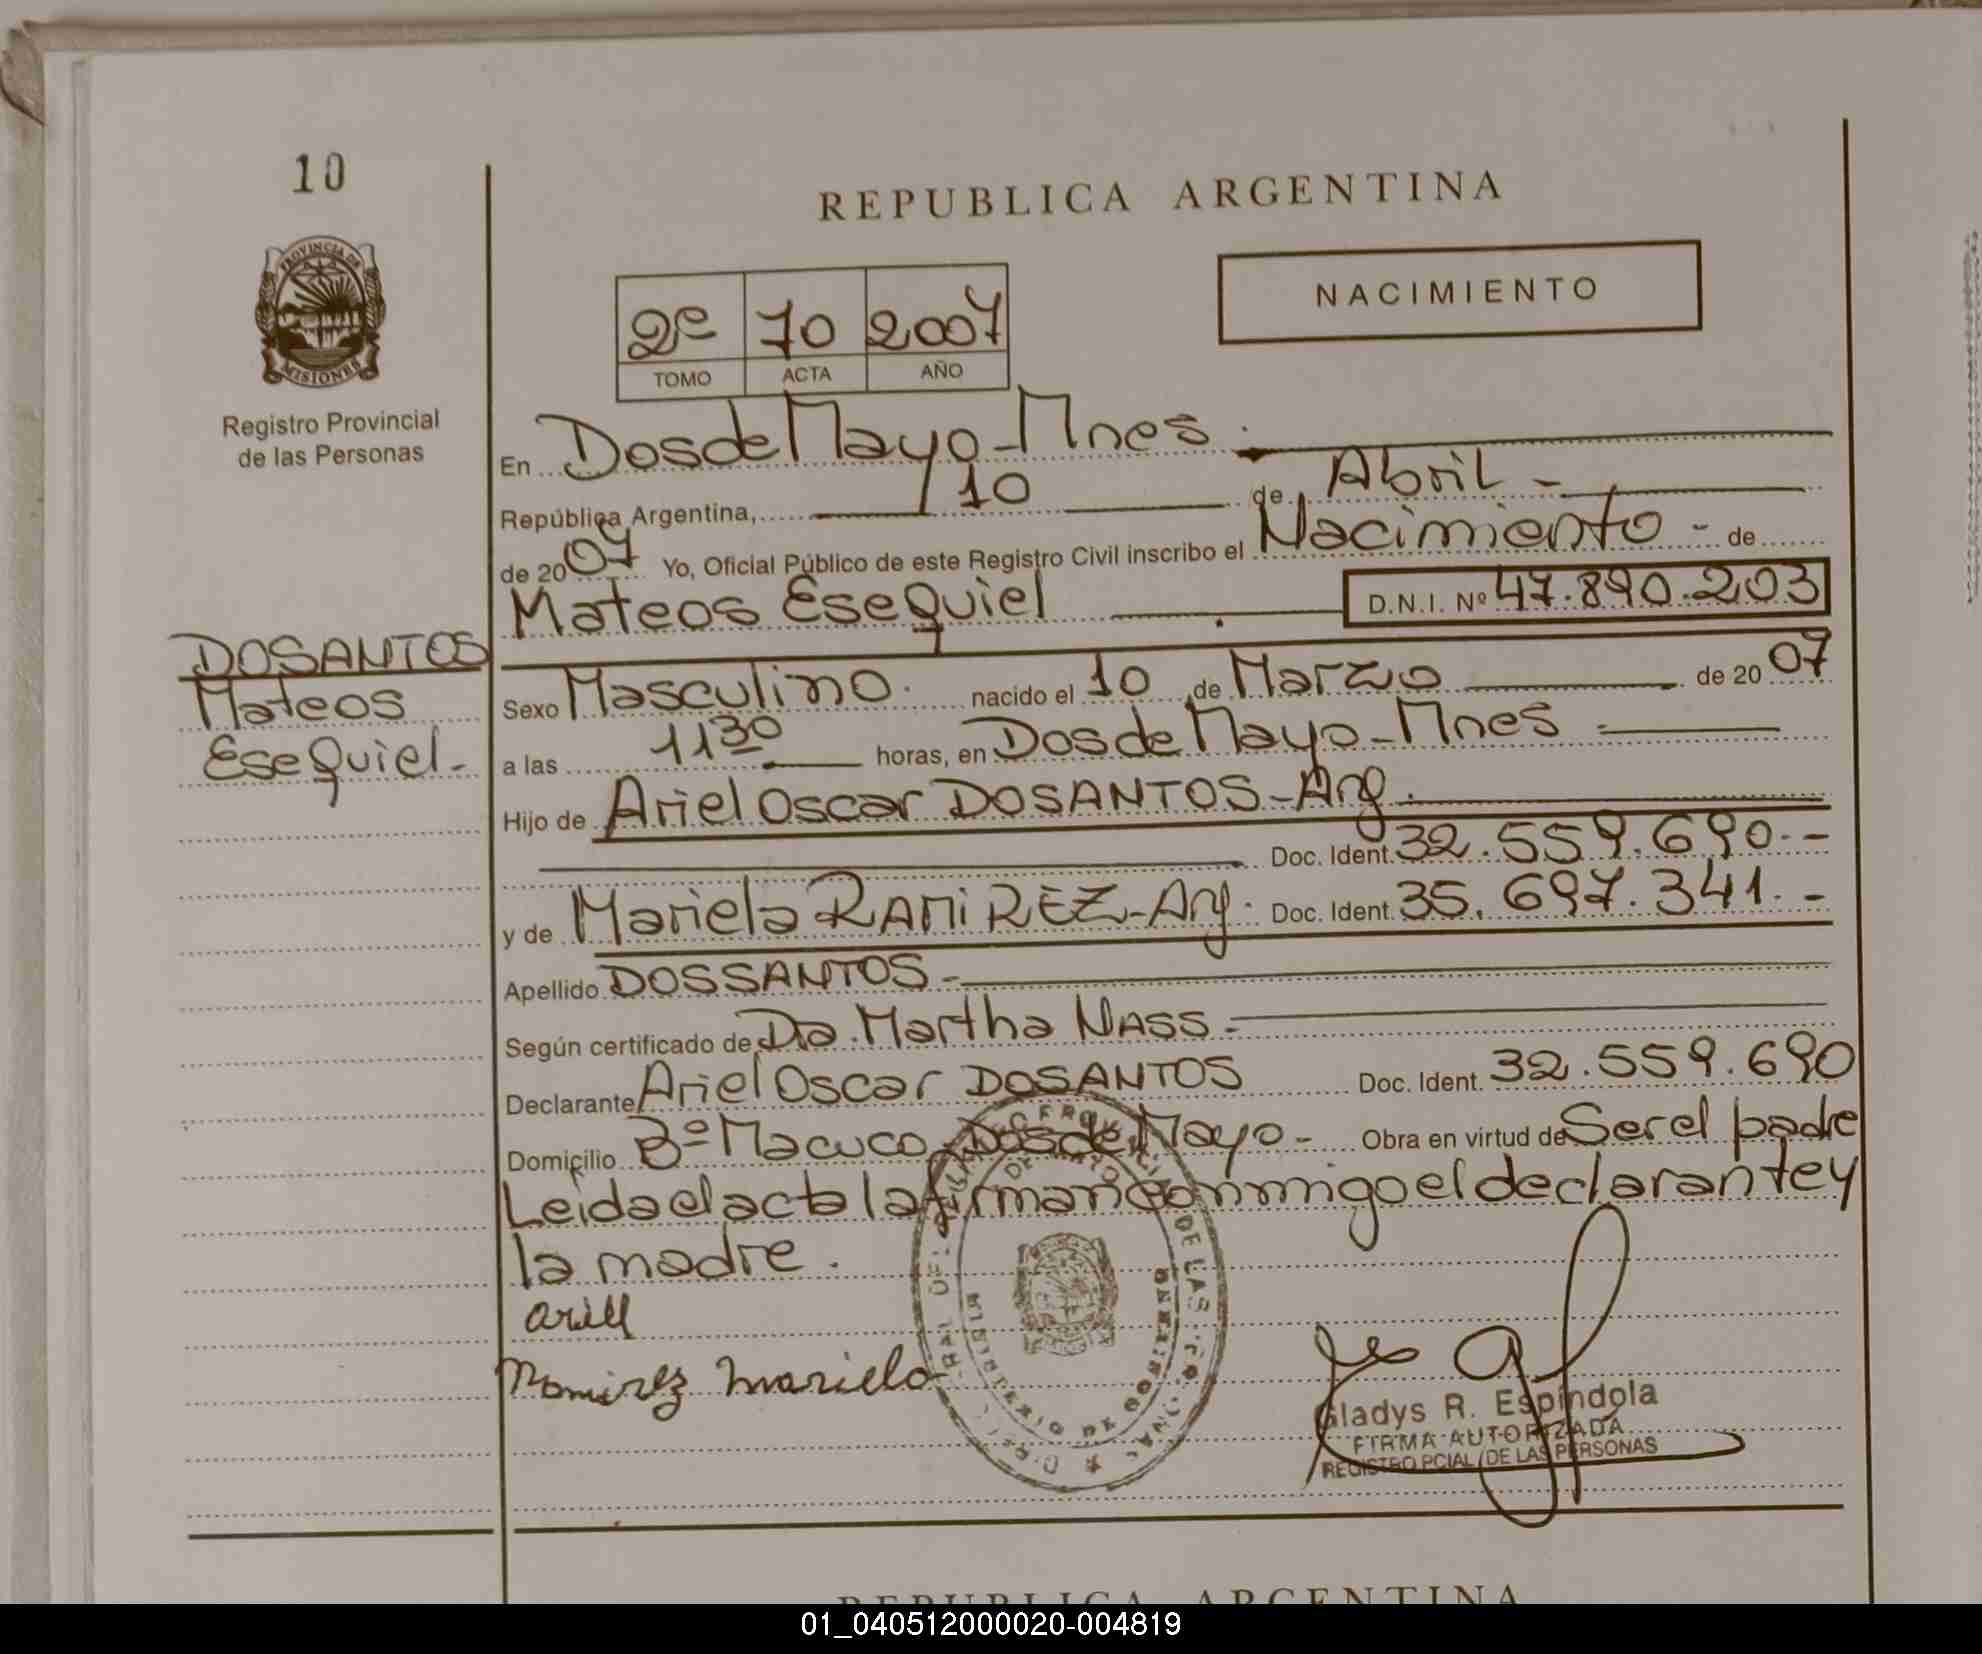 10
REPUBLICA ARGENTINA
PROVINCIA DE
MISIONES
Registro Provincial
de las Personas
NACIMIENTO
2º 70 2007
TOMO ACTA AÑO
En Dos de Mayo - Mnes.
República Argentina, 10 de Abril -
de 2007 Yo, Oficial Público de este Registro Civil inscribo el Nacimiento - de
Mateos Esequiel D.N.I. Nº 47.890.203
DOSANTOS
Mateos
Esequiel.-
Sexo Masculino. nacido el 10 de Marzo de 2007
a las 11 30 horas, en Dos de Mayo - Mnes -
Hijo de Ariel Oscar DOSANTOS - Arg.
Doc. Ident. 32.559.690.-
y de Mariela RAMIREZ - Arg. Doc. Ident. 35.697.341.-
Apellido DOSSANTOS -
Según certificado de Dra. Martha NASS -
Declarante Ariel Oscar DOSANTOS Doc. Ident. 32.559.690
Domicilio Bº Macuco Dos de Mayo - Obra en virtud de Ser el padre
Leida el acta la firman conmigo el declarante y
la madre.
Ariel
Ramirez Mariela
MINISTERIO DE GOBIERNO
DE LAS
Gladys R. Espindola
FIRMA AUTORIZADA
REGISTRO PCIAL DE LAS PERSONAS
REPUBLICA ARGENTINA
01_040512000020-004819